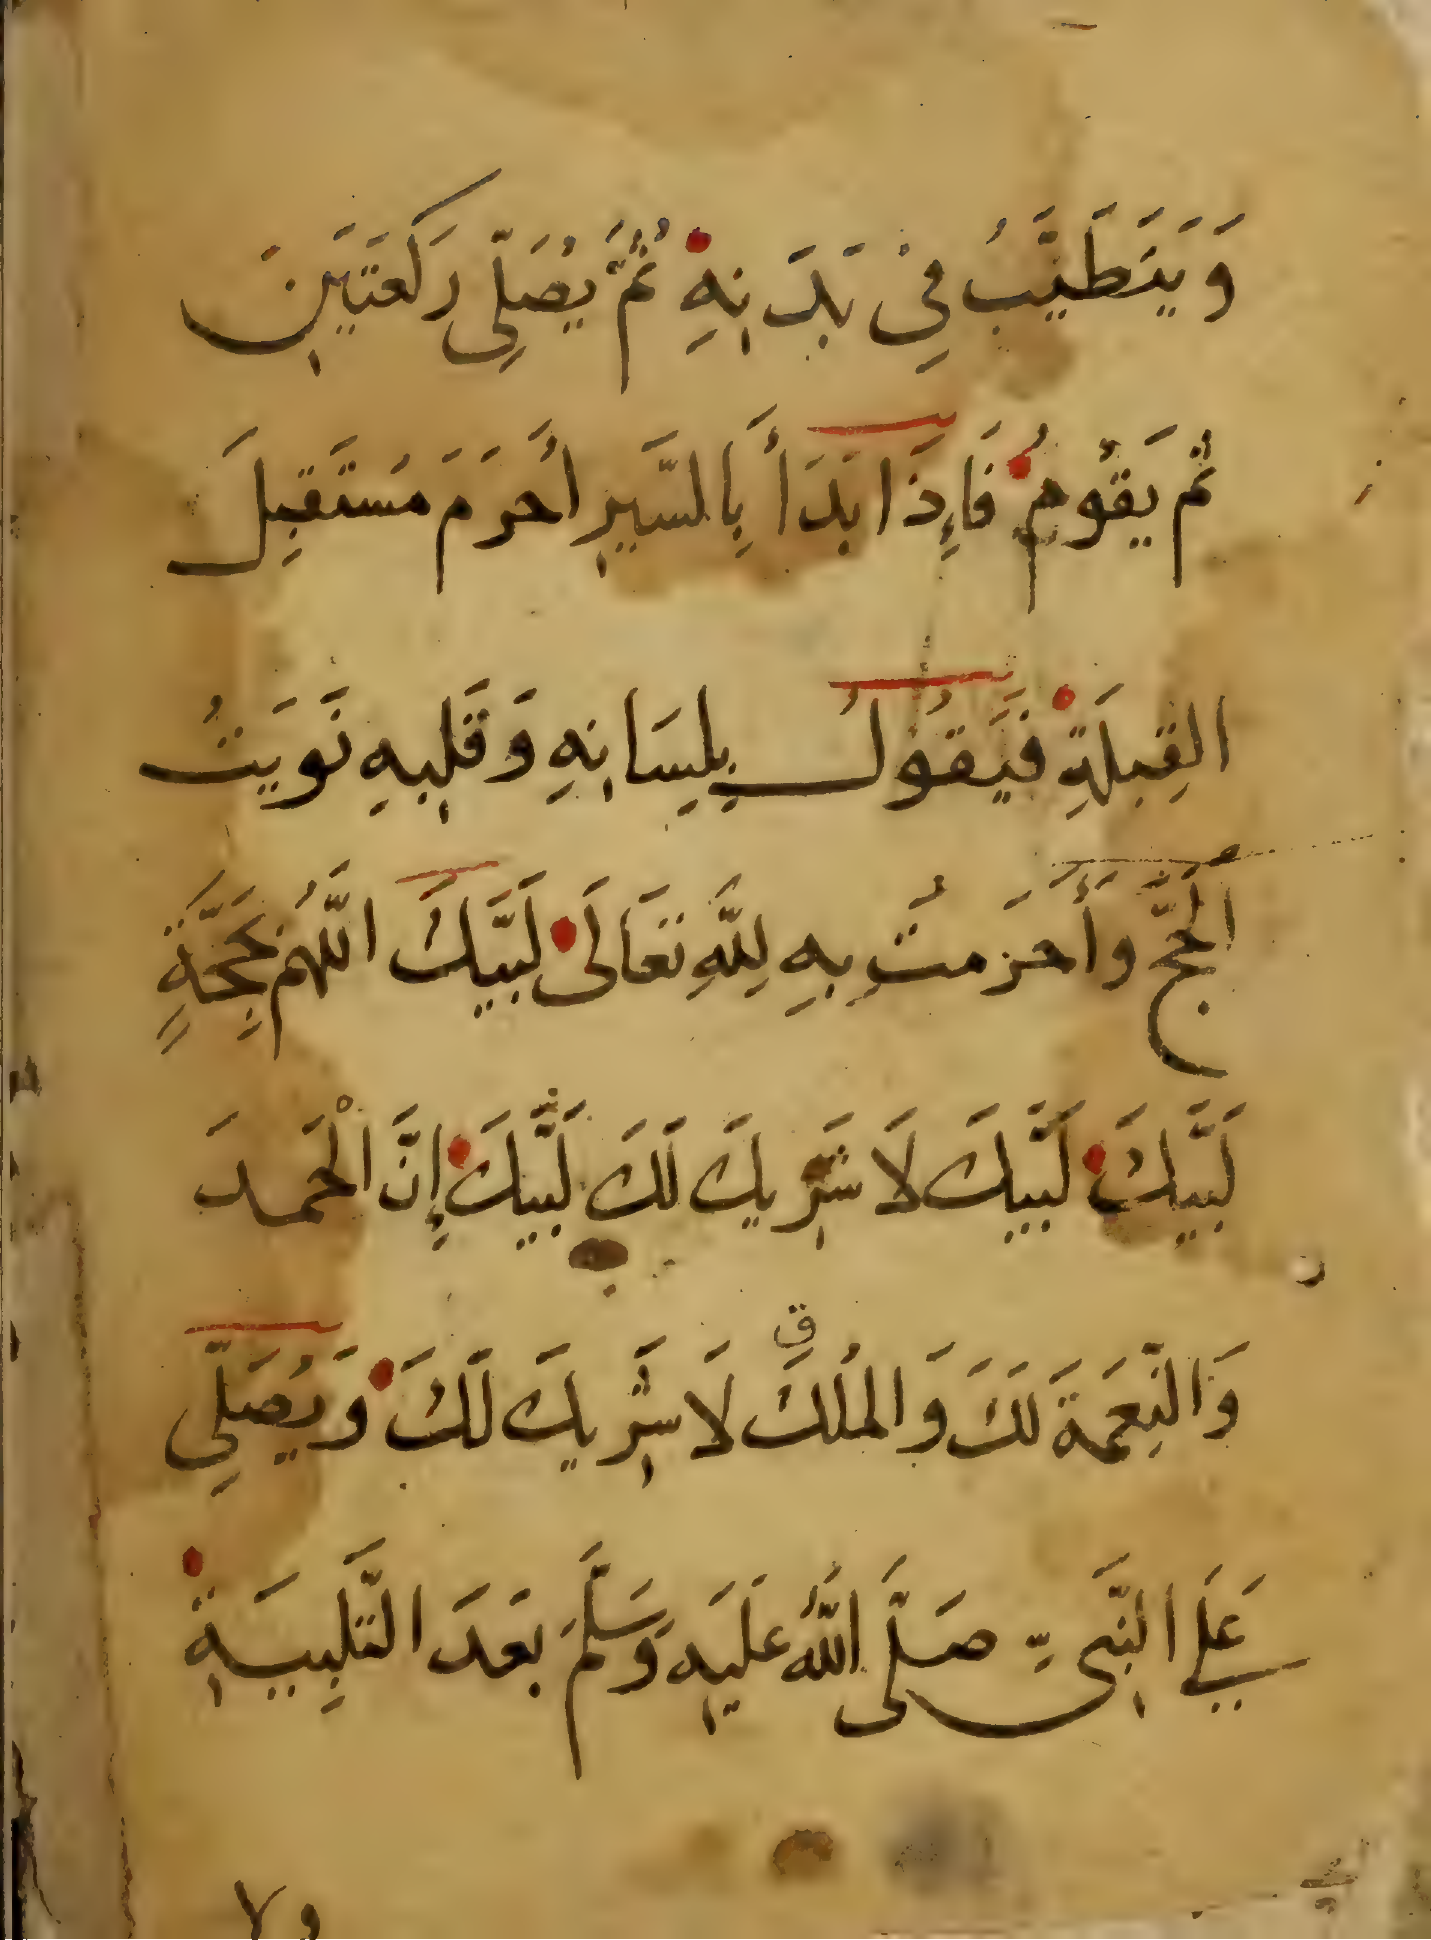 وَيَتَطَيَّبُ فِي بَدَنِهِ ثُمَّ يُصَلِّي رَكعَتَينِ
ثُم يَقُومُ فَإِذَا بَدَأَ بِالسَّيرِ أَحرَمَ مُستَقبِلَ
القِبلَةِ فَيَقُولُ بِلِسَانِهِ وَقَلبِهِ نَوَيتُ
الحَجَّ وَأَحرَمتُ بِهِ لِلَّهِ تَعَالَى لَبَّيكَ اللَّهُم بِحَجَّةٍ
لَبَّيكَ لَبَّيكَ لَا شَرِيكَ لَكَ لَبَّيكَ إِنَّ الْحَمدَ
ق
وَالنِّعمَةَ لَكَ وَالمُلكَ لَا شَرِيكَ لَكَ وَيُصَلِّي
عَلَي النَّبِيِّ صَلَّى اللَّهُ عَلَيهِ وَسَلَّمَ بَعدَ التَّلبِيَةِ
ولا